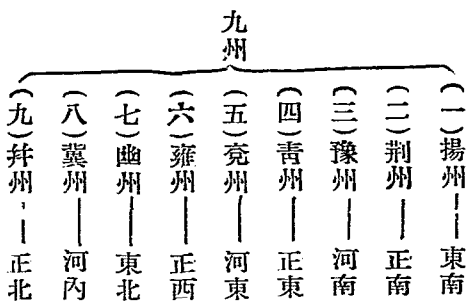 九州
(一)揚州——東南
(二)荆州——正南
(三)豫州——河南
(四)靑州——正東
(五)兗州——河東
(六)雍州——正西
(七)幽州——東北
(八)冀州——河內
(九)幷州——正北